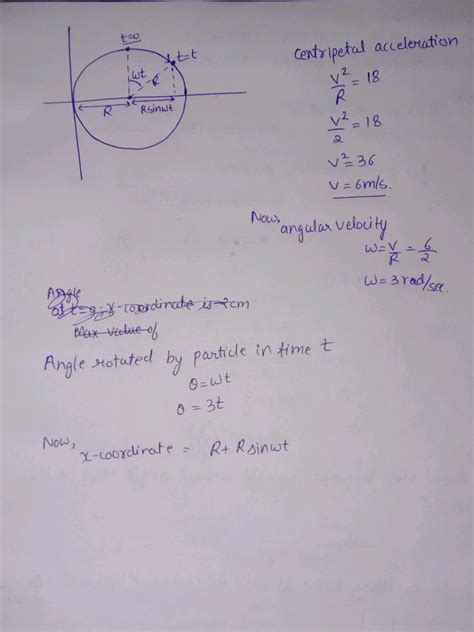 t=0
t=t
ωt
R
R
Rsinωt
Centripetal acceleration
v²/R = 18
v²/2 = 18
v²=36
v=6m/s.
Now,
angular velocity
ω=v/R = 6/2
ω=3rad/sec.
Angle
at t=0, x-coordinate is 2cm
Max value of
Angle rotated by particle in time t
θ=ωt
θ=3t
Now,
x-coordinate = R+Rsinωt